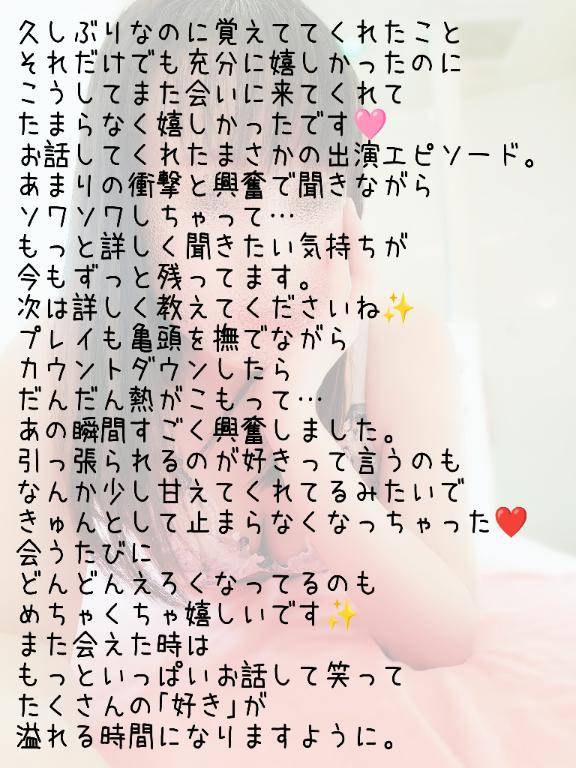 久しぶりなのに覚えててくれたこと
それだけでも充分に嬉しかったのに
こうしてまた会いに来てくれて
たまらなく嬉しかったです🩷
お話してくれたまさかの出演エピソード。
あまりの衝撃と興奮で聞きながら
ソワソワしちゃって…
もっと詳しく聞きたい気持ちが
今もずっと残ってます。
次は詳しく教えてくださいね✨
プレイも亀頭を撫でながら
カウントダウンしたら
だんだん熱がこもって…
あの瞬間すごく興奮しました。
引っ張られるのが好きって言うのも
なんか少し甘えてくれてるみたいで
きゅんとして止まらなくなっちゃった❤️
会うたびに
どんどんえろくなってるのも
めちゃくちゃ嬉しいです✨
また会えた時は
もっといっぱいお話して笑って
たくさんの「好き」が
溢れる時間になりますように。